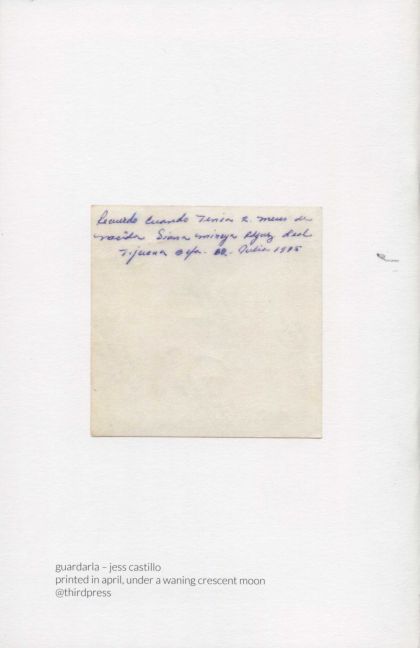 Recuerdo Cuando Tenia 2. meses de
nacida Diana mireya Rdguez Leal
Tijuana Bfa. Julio 19
guardarla – jess castillo
printed in april, under a waning crescent moon
@thirdpress